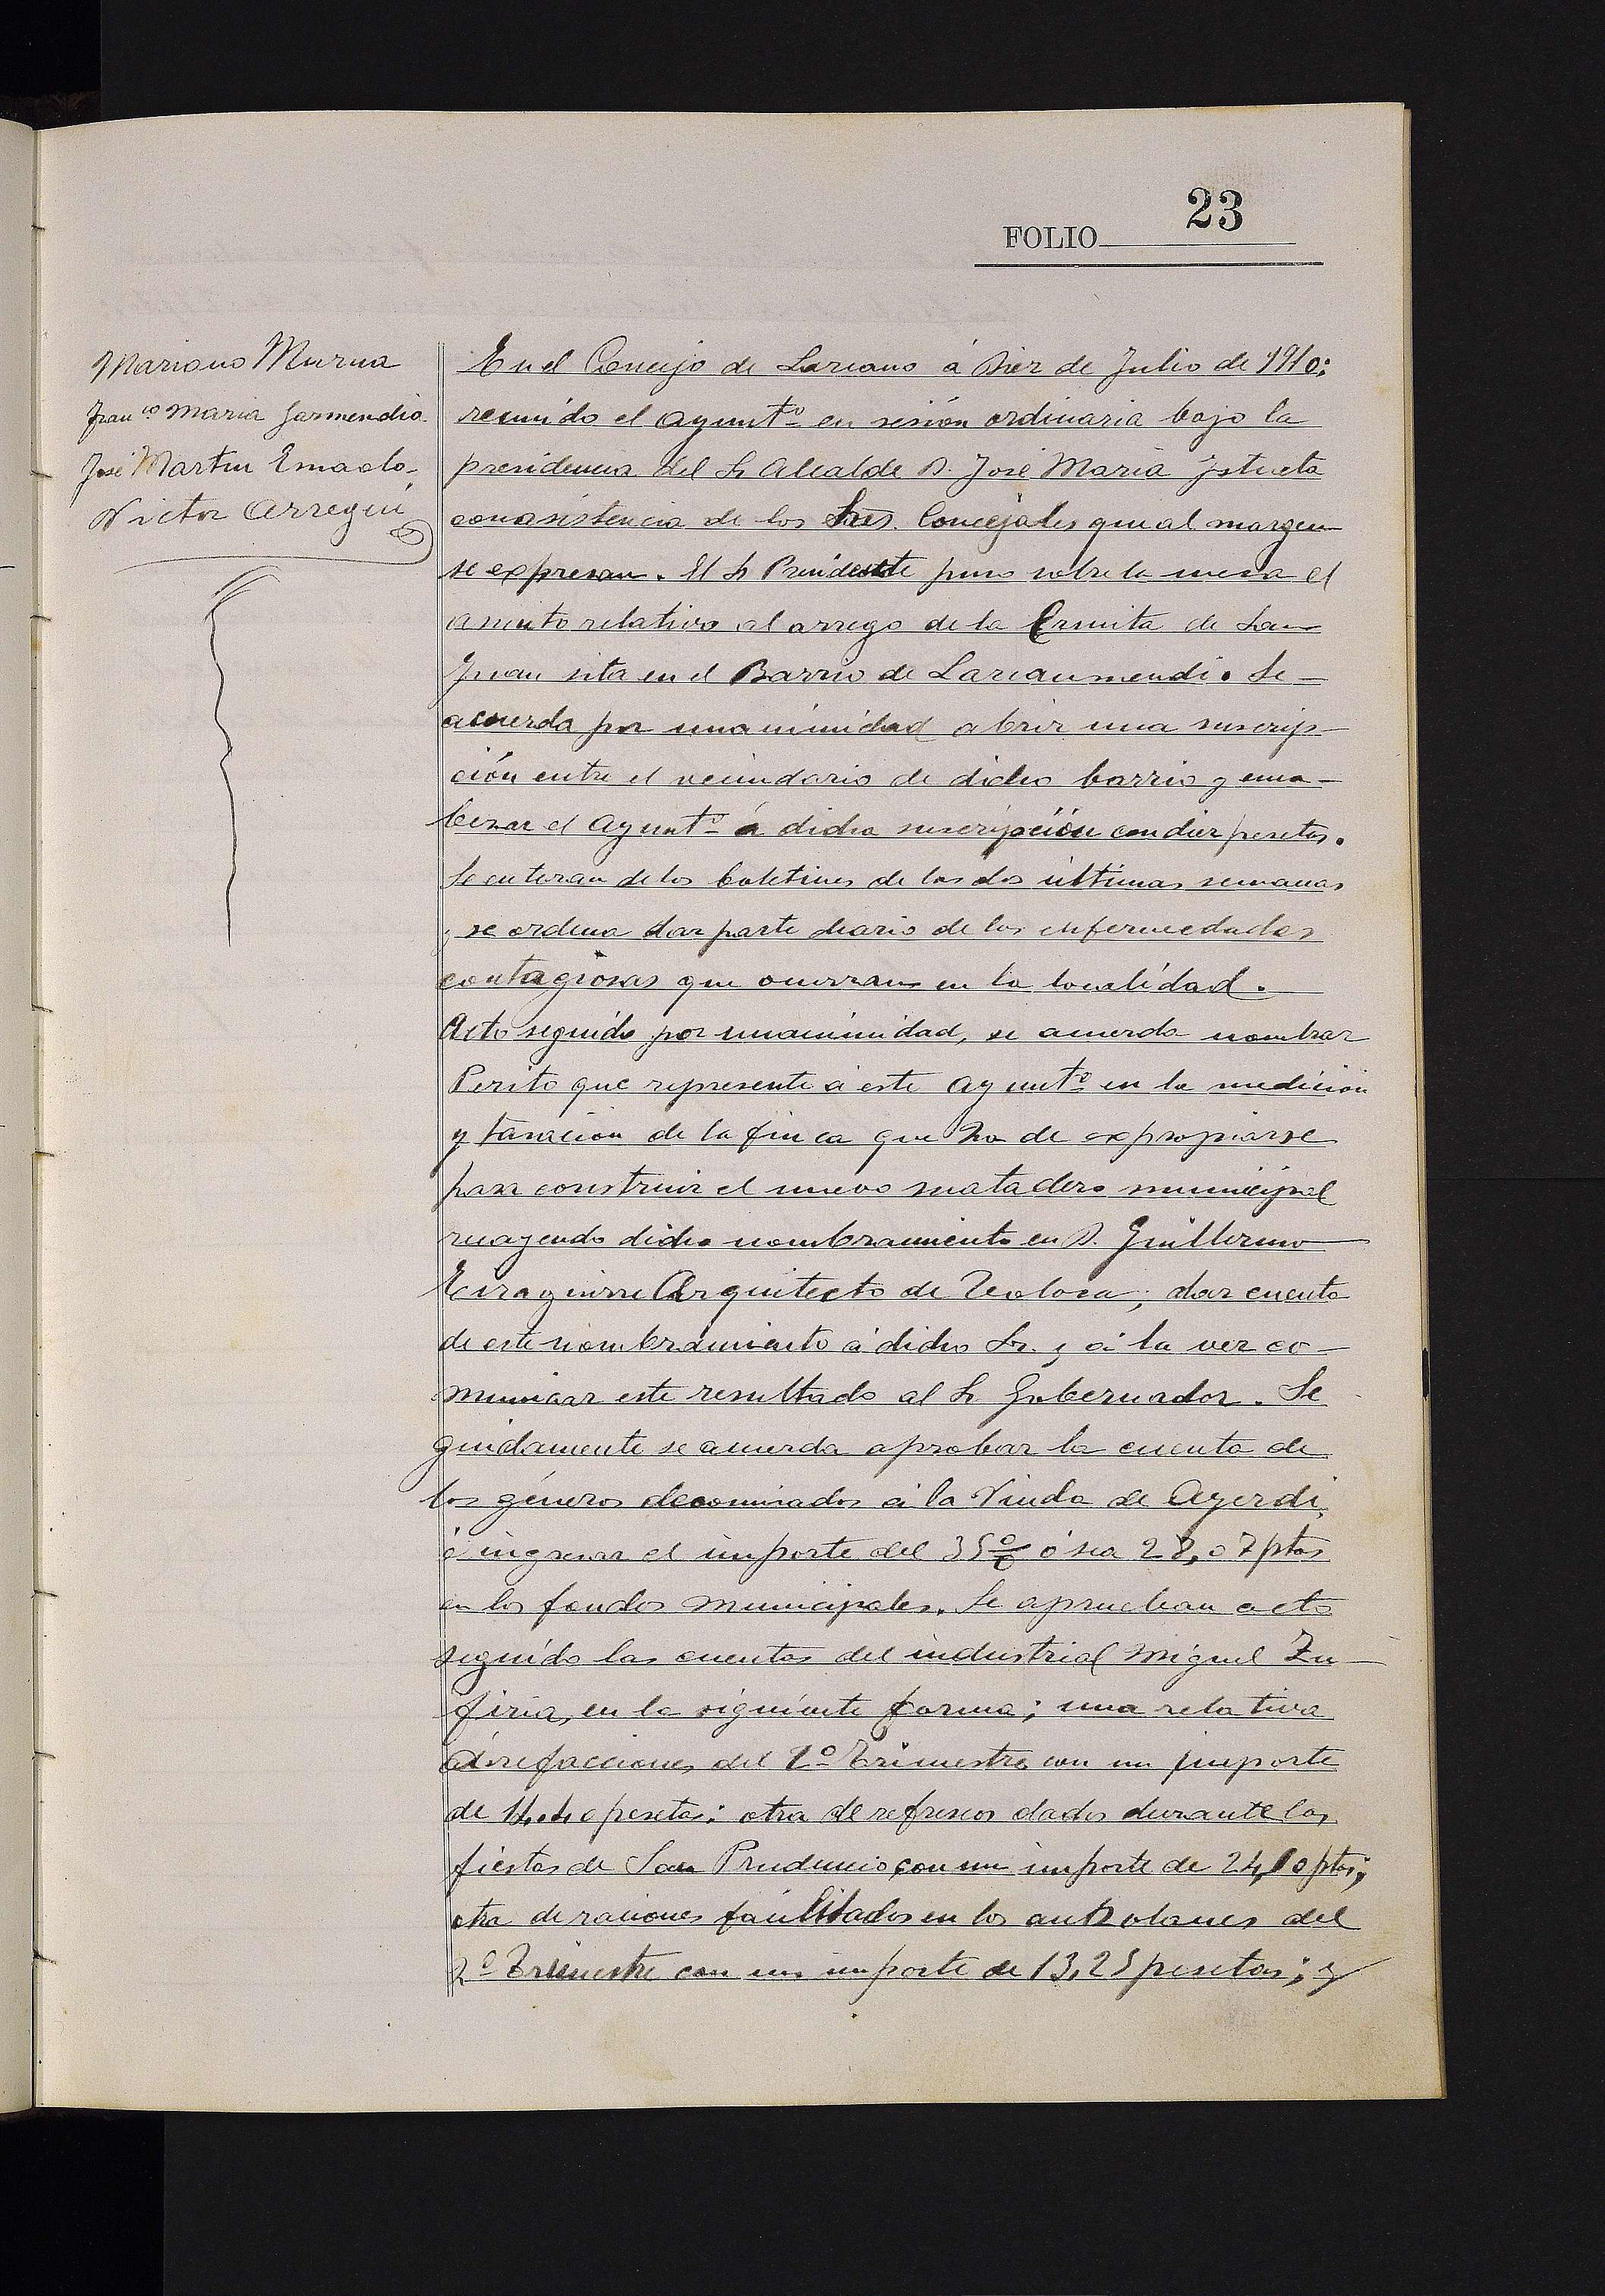 23
FOLIO
Mariano Murua
Fran.co Maria Garmendia
José Martin Ernaelo
Victor Arregui
En el Concejo de Lazcano á Diez de Julio de 1910:
reunido el ayunt.o en sesión ordinaria bajo la
presidencia del Sr Alcalde D. José Maria Ystueta
con asistencia de los Sres. Concejales que al margen
se expresan. El Sr Presidente puso sobre la mesa el
asunto relativo al arreglo de la Ermita de San
Juan sita en el Barrio de Lazcaumendi. Se
acuerda por unanimidad abrir una suscrip-
ción entre el vecindario de dicho barrio y enca-
bezar el Ayunt.o á dicha suscripción con diez pesetas.
Se enteran de los boletines de las dos últimas semanas
y se ordena dar parte diario de las enfermedades
contagiosas que ocurran en la localidad.
Acto seguido por unanimidad, se acuerda nombrar
Perito que represente á este Ayunt.o en la medición
y tasación de la finca que ha de expropiarse
para construir el nuevo matadero municipal
recayendo dicho nombramiento en D. Guillermo
Eizaguirre Arquitecto de Tolosa; dar cuenta
de este nombramiento á dicho Sr. y á la vez co-
municar este resultado al Sr Gobernador. Se
guidamente se acuerda aprobar la cuenta de
los géneros decomisados á la Viuda de Ayerdi,
é ingresar el importe del 35 % ó sea 28,07 ptas
en los fondos municipales. Se aprueban acto
seguido las cuentas del industrial Miguel Zu-
firia, en la siguiente forma; una relativa
á refacciones del 2º Trimestre con un importe
de pesetas: otra de refrescos dados durante las
fiestas de San Prudencio con un importe de ptas;
otra de raciones facilitadas en los del
2º Trimestre con un importe de 13,25 pesetas; y